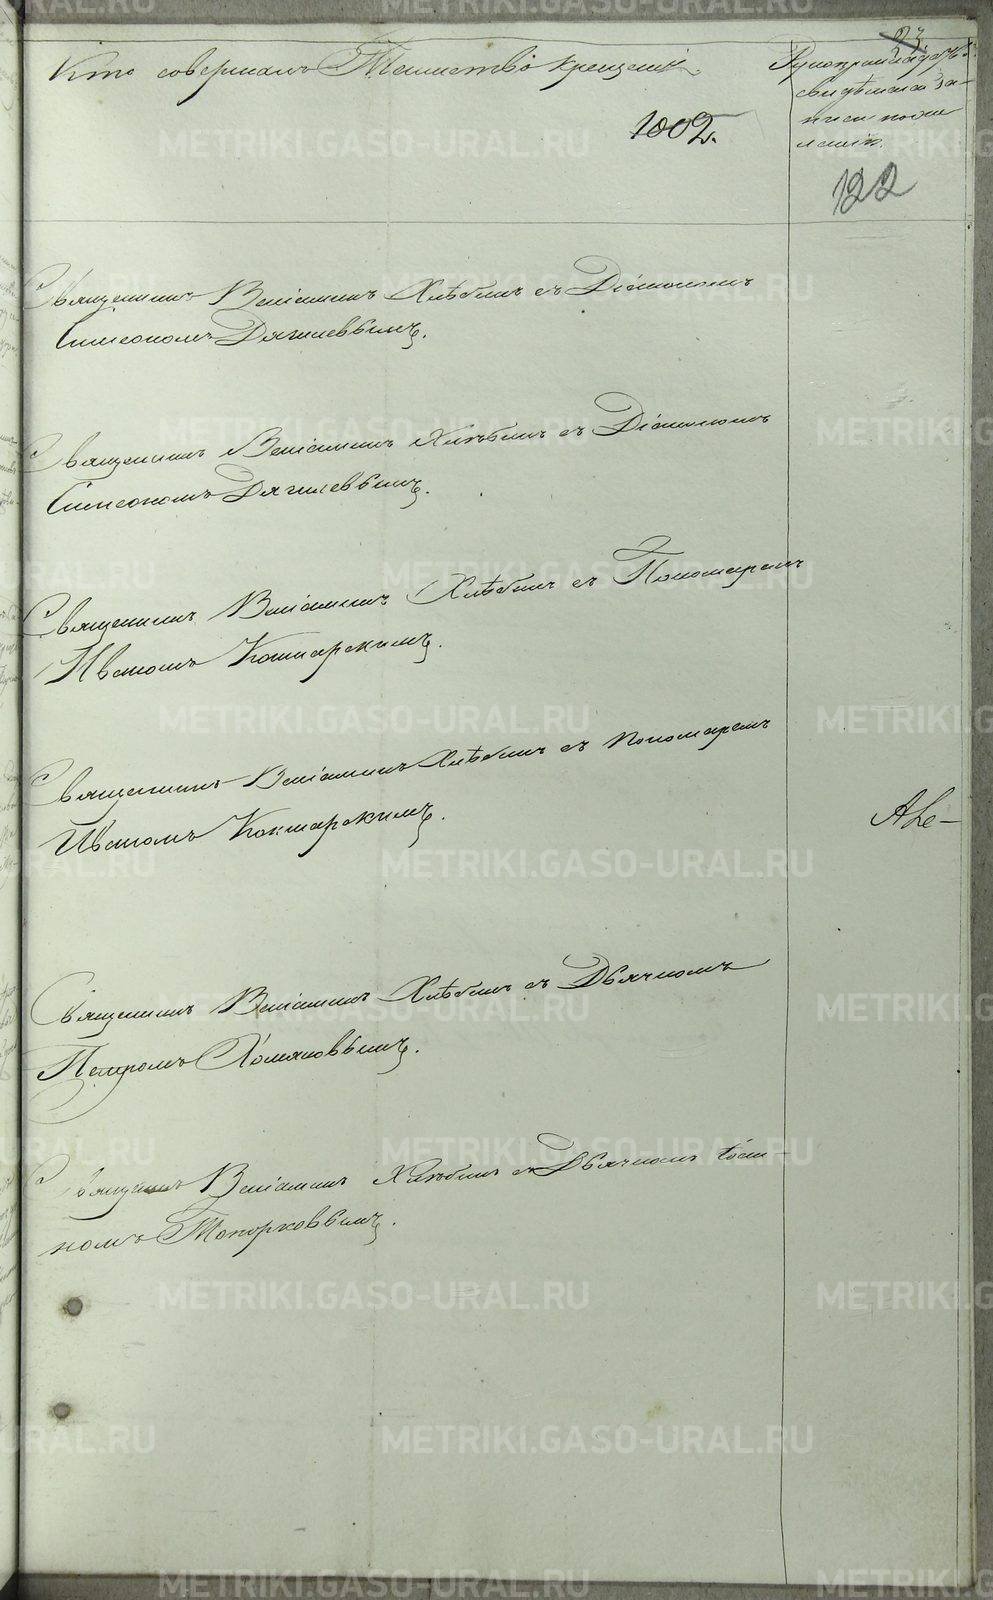 23.
Кто совершалъ Таинство крещенія
Рукоприкладство
свидѣтелей за-
писи по же
ланію.
1002.
122
Священникъ Веніаминъ Хлѣбинъ съ Діакономъ
Симеономъ Дягилевымъ.
Священникъ Веніаминъ Хлѣбинъ съ Діакономъ
Симеономъ Дягилевымъ.
Священникъ Веніаминъ Хлѣбинъ съ Пономаремъ
Иваномъ Кокшарскимъ.
Священникъ Веніаминъ Хлѣбинъ съ пономаремъ
Иваномъ Кокшарскимъ.
Священникъ Веніаминъ Хлѣбинъ съ Дьячкомъ
Петромъ Хомяковымъ.
Священникъ Веніаминъ Хлѣбинъ съ Дьячкомъ
номъ Топорковымъ.
METRIKI.GASO-URAL.RU